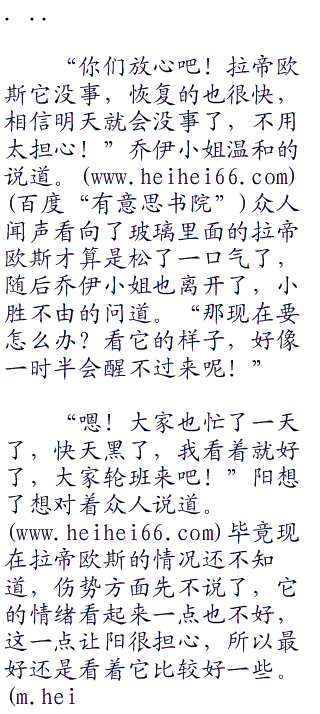 . ..
“你们放心吧！拉帝欧
斯它没事，恢复的也很快，
相信明天就会没事了，不用
太担心！”乔伊小姐温和的
说道。(www.heihei66.com)
(百度“有意思书院”)众人
闻声看向了玻璃里面的拉帝
欧斯才算是松了一口气了，
随后乔伊小姐也离开了，小
胜不由的问道。“那现在要
怎么办？看它的样子，好像
一时半会醒不过来呢！”
“嗯！大家也忙了一天
了，快天黑了，我看着就好
了，大家轮班来吧！”阳想
了想对着众人说道。
(www.heihei66.com)毕竟现
在拉帝欧斯的情况还不知
道，伤势方面先不说了，它
的情绪看起来一点也不好，
这一点让阳很担心，所以最
好还是看着它比较好一些。
(m.hei